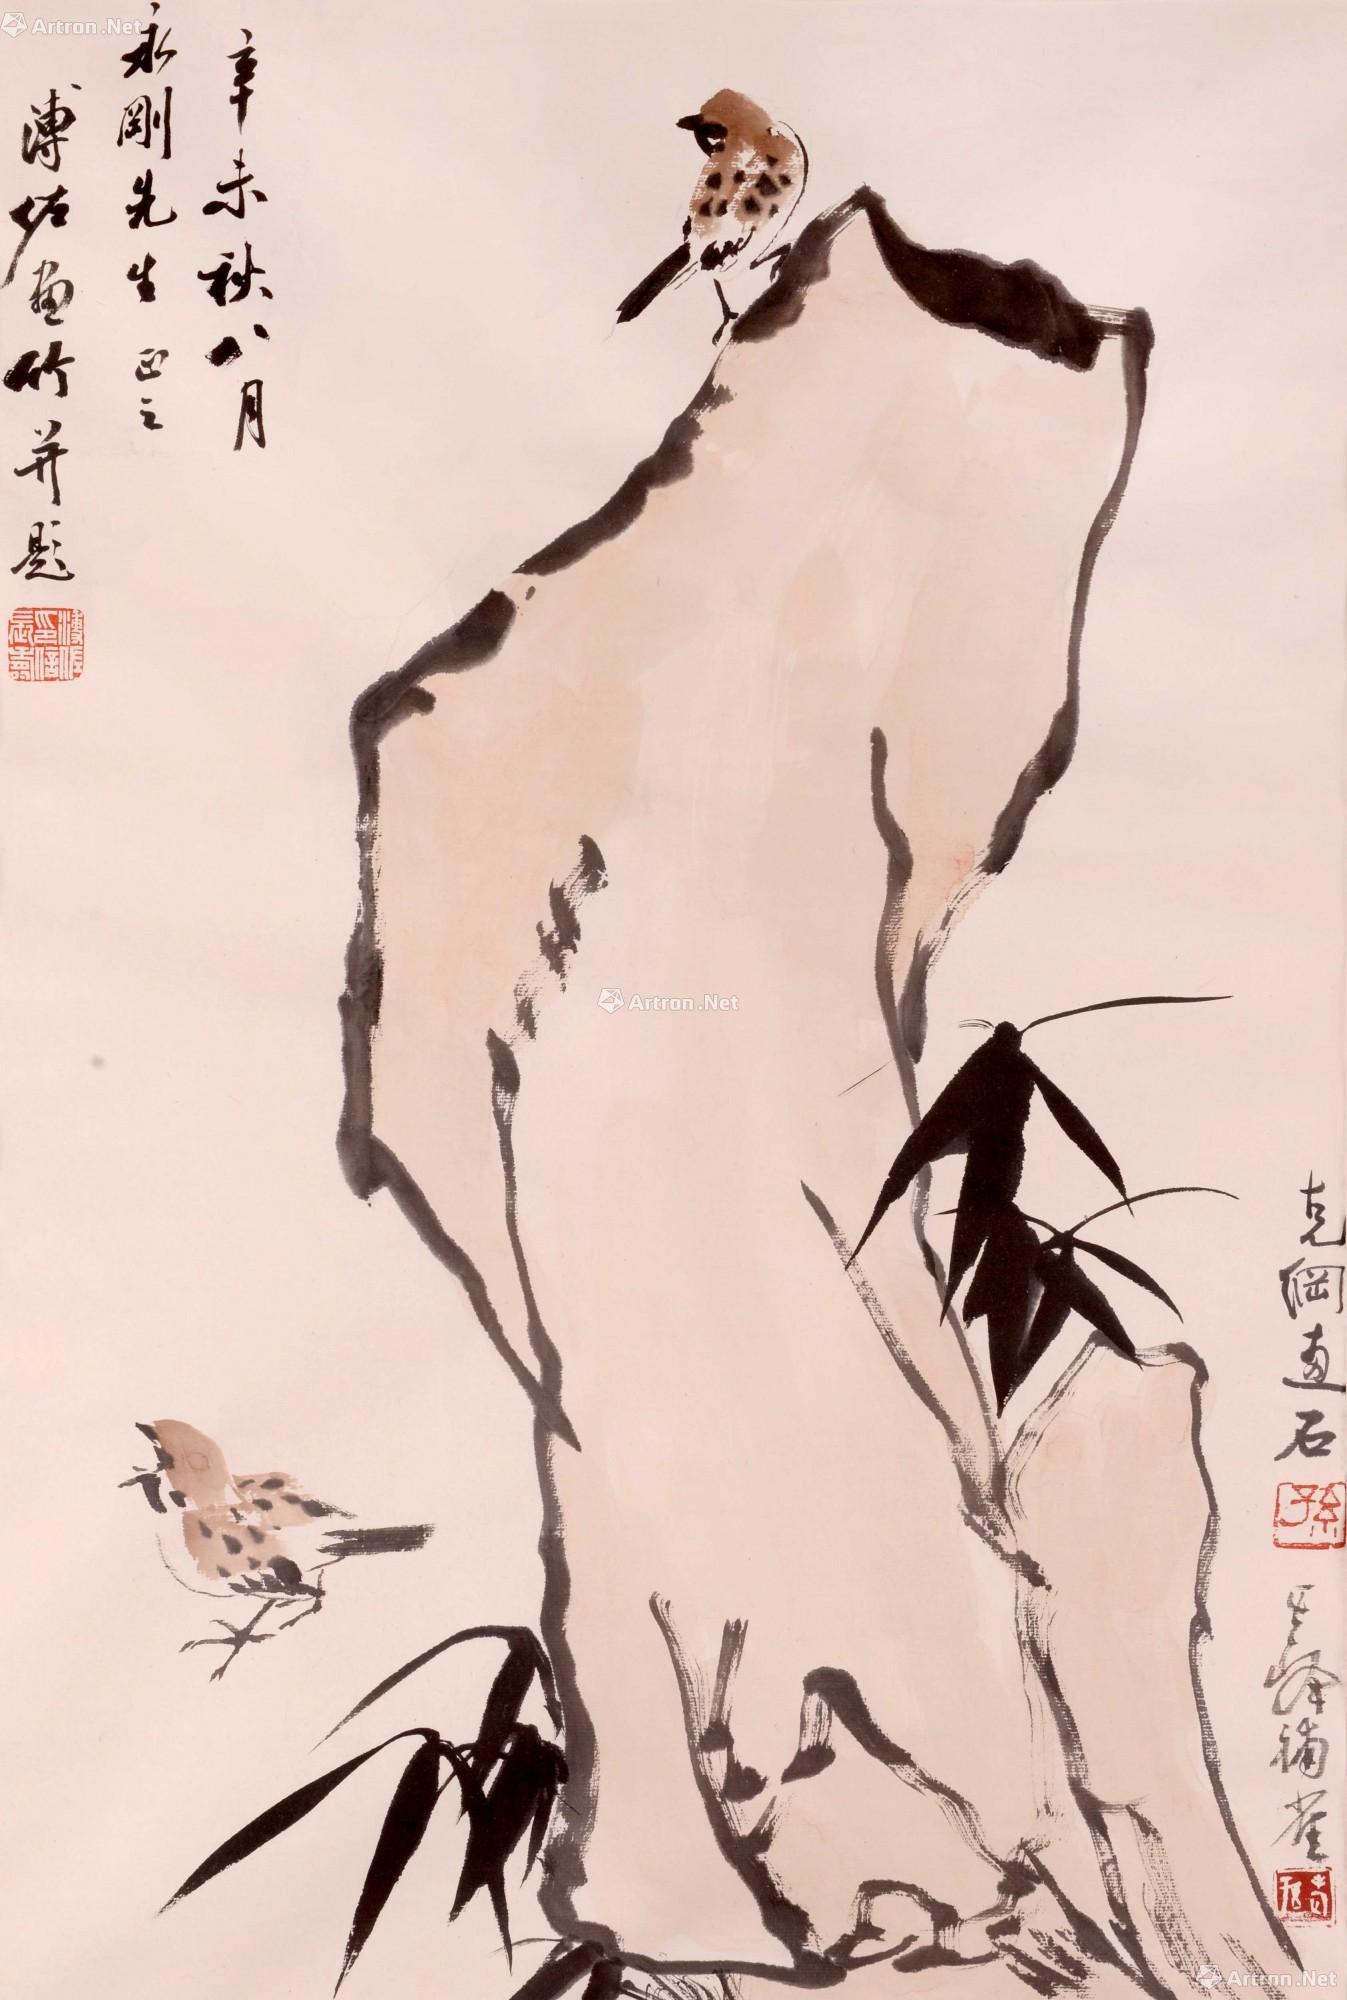 辛未秋八月
永剛先生正之
溥佐画竹并題
克綱画石
孫
補雀
Artron.Net
Artron.Net
Artron.Net